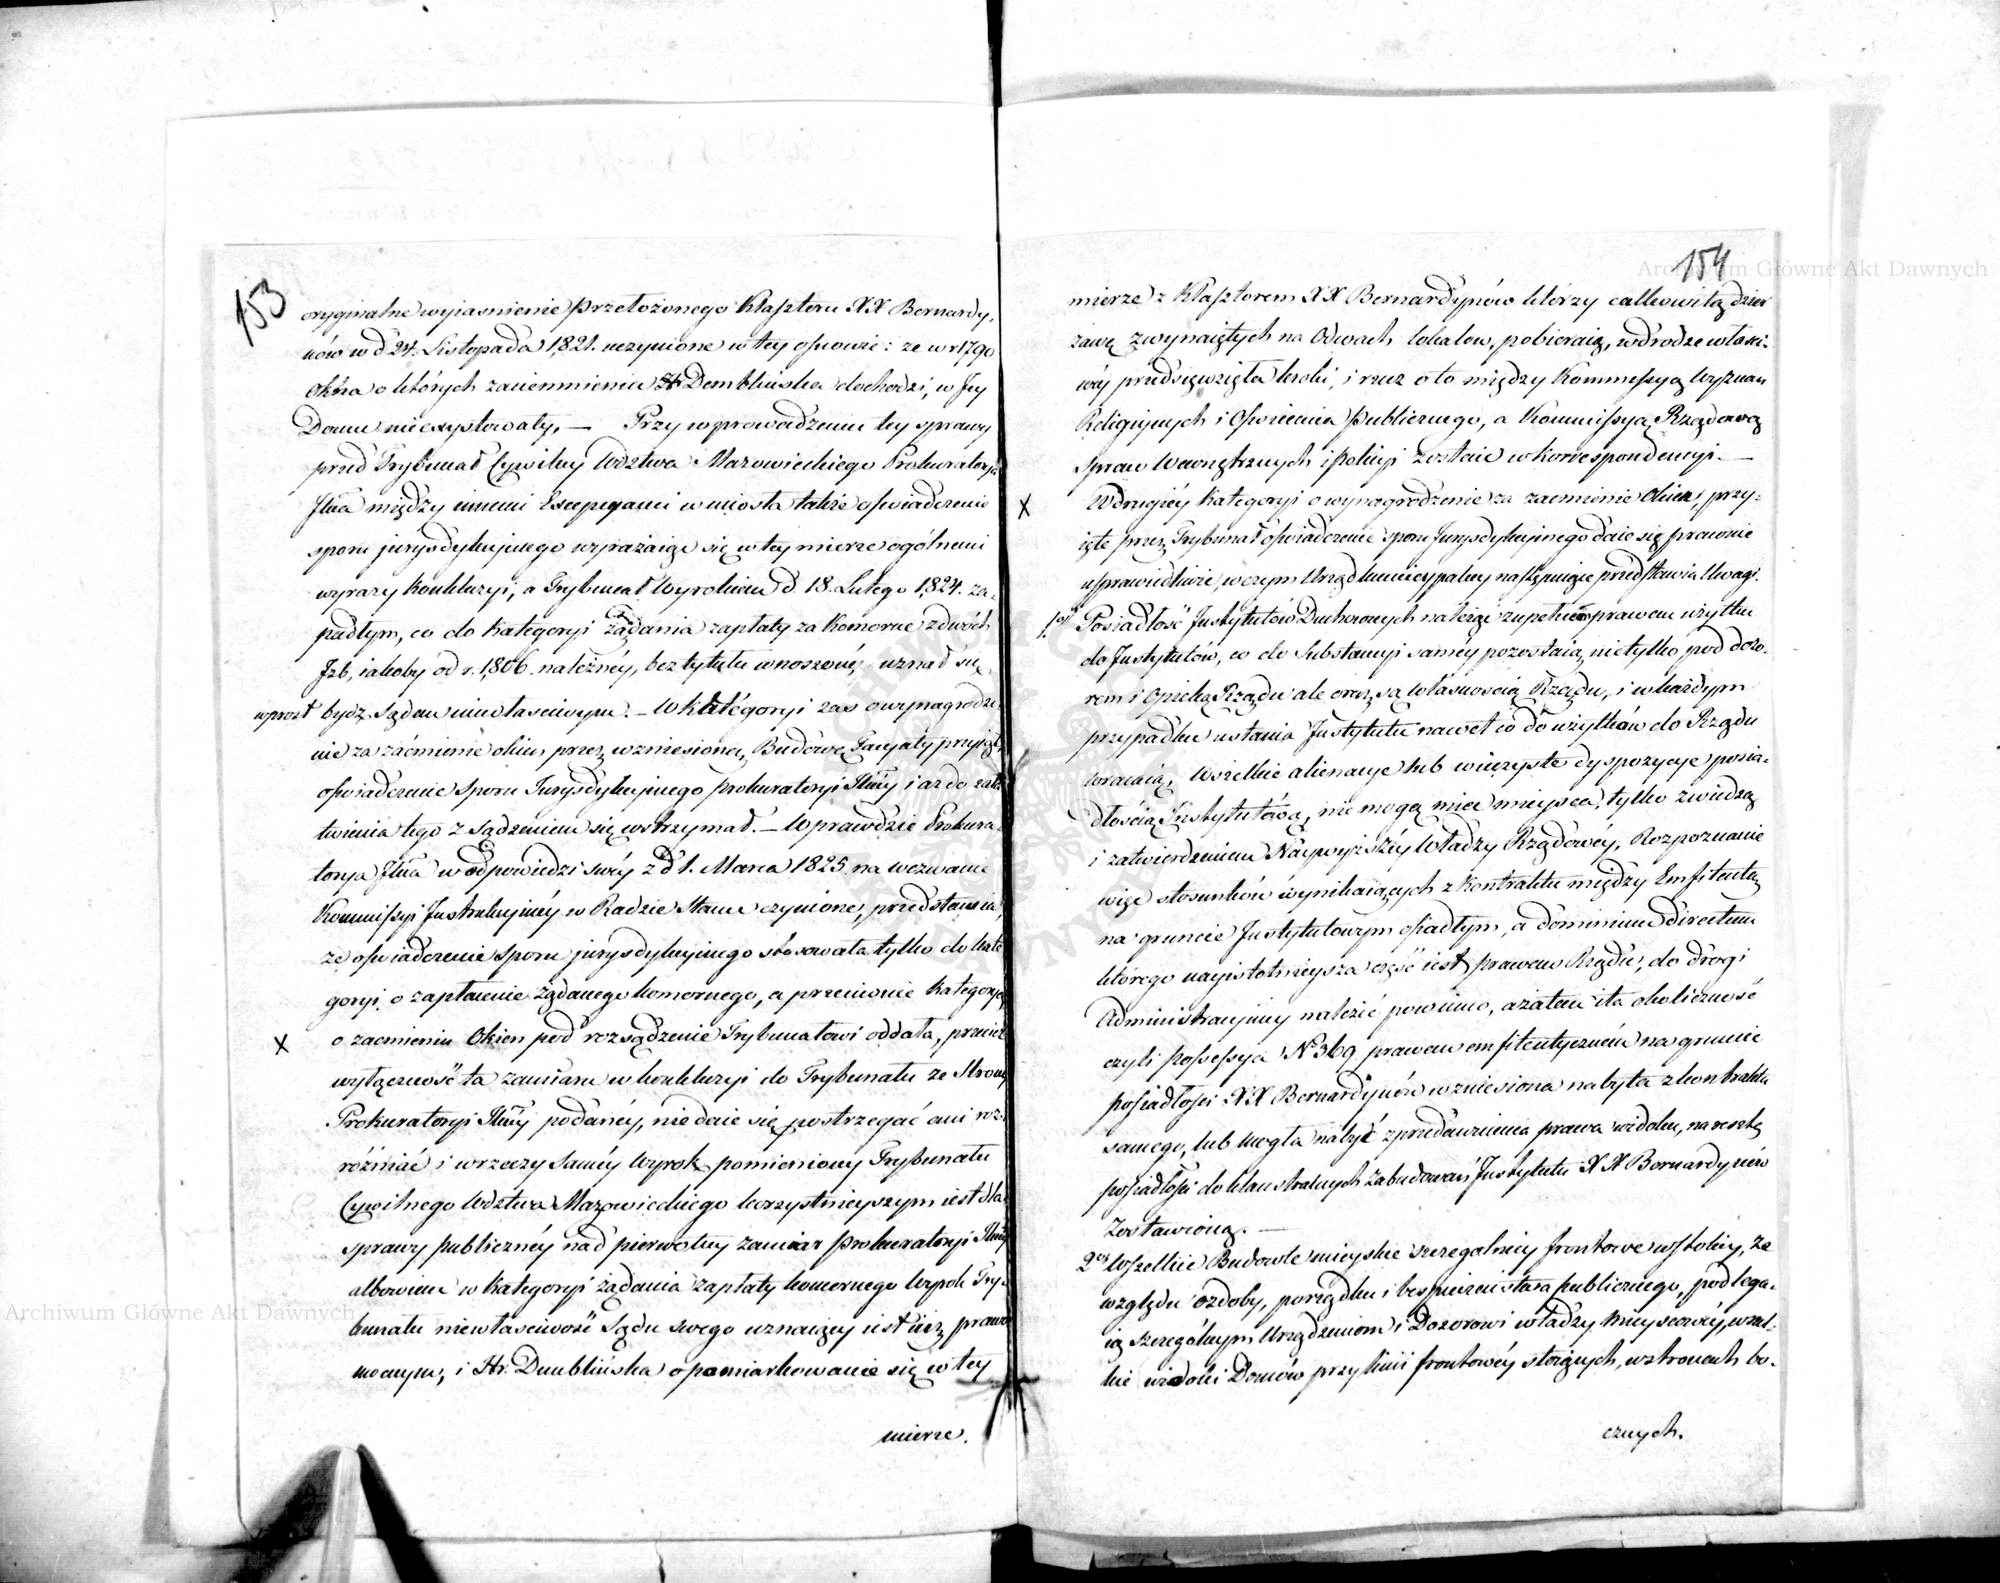 153
oryginalne wyiasnienie Przełożonego Klasztoru XX Bernardy-
nów w d 24. Listopada 1821. uczynione w tey osnowie: że w r 1790
Okna o których zaciemnienie Hr Demblińska dochodzi, w Jey
Domu nieexystowały. — Przy wprowadzeniu tey sprawy
przed Trybunał Cywilny Wdztwa Mazowieckiego Prokuratorya
Jlna między innemi Excepcyami wniosła także oświadczenie
sporu jurysdykcyjnego wyrażaiąc się w tey mierze ogólnemi
wyrazy konkluzyi, a Trybunał Wyrokiem d. 18. Lutego 1824. za-
padłym, co do kategoryi żądania zapłaty za komorne z dwóch
Jzb, iakoby od r. 1806. należnéy, bez tytułu wnoszoné, uznał się
wprost bydź Sądem niewłaściwym. — W kategoryi zaś o wynagrodze-
nie za zaćmienie okien przez wzniesioną Budowę Facyaty przyiął
oświadczenie Sporu Jurysdykcyjnego prokuratoryi Jlnéy i aż do zała
twienia tego z Sądzeniem się wstrzymał. — Wprawdzie Prokura-
torya Jlna w odpowiedzi swéy z d 1. Marca 1825 na wezwanie
Kommissyi Jnstrukcyjnéy w Radzie Stanu czynione, przedstawia
że oświadczenie Sporu jurysdykcyjnego stosowała tylko do kate
goryi o zapłacenie żądanego komornego, a przeciwnie kategoryą
X o zacmieniu Okien pod rozsądzenie Trybunałowi oddała, przecież
wyłączność ta zamiaru w konkluzyi do Trybunału ze Strony
Prokuratoryi Jlnéy podanéy, nie daie się postrzegać ani roz-
różniać i w rzeczy saméy Wyrok pomieniony Trybunału
Cywilnego Wdztwa Mazowieckiego korzystnieyszym iest dla
sprawy publicznéy nad pierwotny zamiar Prokuratoryi Jlnéy
albowiem w kategoryi żądania zapłaty komornego Wyrok Try-
bunału niewłasciwość Sądu swego uznaiący iest iuż prawo
mocnym, i Hr. Demblińska o pomiarkowanie się w tey
mierze.
154
mierze z Klasztorem XX Bernardynów którzy całkowitą dzier
żawę z wynaiętych na Odwach lokalow, pobieraią, w drodze właści-
wéy przedsięwzięła kroki, i rzecz o to między Kommissyą Wyznań
Religijnych i Oświecenia Publicznego, a Kommissyą Rządową
Spraw Wewnętrznych i Policyi zostaie w korrespondencyi. —
X W drugiéy kategoryi o wynagrodzenie za zaćmienie Okien, przy-
ięte przez Trybunał oświadczenie sporu Jurysdykcyjnego daie się prawnie
usprawiedliwić, w czym Urząd Municypalny następuiące przedstawia Uwagi.
1sza Posiadłość Jnstytutów Duchownych należąc zupełnem prawem użytku
do Jnstytutów, co do Substancyi saméy pozostaią nie tylko pod dozo-
rem i opieką Rządu ale oraz są własnoscią Rządu, i w każdym
przypadku ustania Jnstytutu nawet co do użytków do Rządu
wracaią. Wszelkie alienacye lub wieczyste dyspozycye posia-
dłością Jnstytutową, nie mogą mieć mieysca, tylko z wiedzą
i zatwierdzeniem Naywyższéy Władzy Rządowéy, Rozpoznanie
więc stosunków wynikaiących z kontraktu między Emfiteutą
na gruncie Jnstytutowym osiadłym, a dominium directum
którego nayistotnieysza część iest prawem Rządu, do drogi
Administracyiney należéć powinno, a zatem i ta okoliczność
czyli possessya N° 369 prawem emfiteutycznem na gruncie
posiadłości XX Bernardynów wzniesiona nabyła z kontraktu
samego, lub mogła nabyć z przedawnienia prawa widoku, na resztę
posiadłości do klaustralnych zabudowań Jnstytutu XX Bernardynów
zostawioną. —
2re Wszelkie Budowle mieyskie szczegolniey frontowe w stolicy, ze
względu ozdoby, porządku i bespieczeństwa publicznego, podlega-
ią szczególnym Urządzeniom i Dozorowi władzy mieyscowéy, wszel-
kie widoki Domów przy linii frontowéy stoiących, w stronach bo-
cznych.
Archiwum Główne Akt Dawnych
Archiwum Główne Akt Dawnych